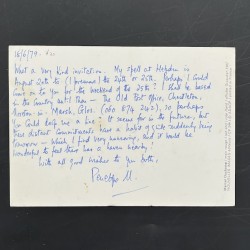 16/6/79.
What a very kind invitation. My spell at Hebden is
August 20th to (I presume) the 24th or 25th. Perhaps I could
come on to you for the weekend of the 25th? I shall be based
in the country until then - the Old Post Office, Chastleton,
Moreton in Marsh, Glos. (060 874 242), so perhaps
you could drop me a line? It seems far in the future, but
these distant commitments have a habit of suddenly being
tomorrow - which I find very alarming, and it would be
wonderful to feel there was a haven nearby!
With all good wishes to you both,
Penelope M.